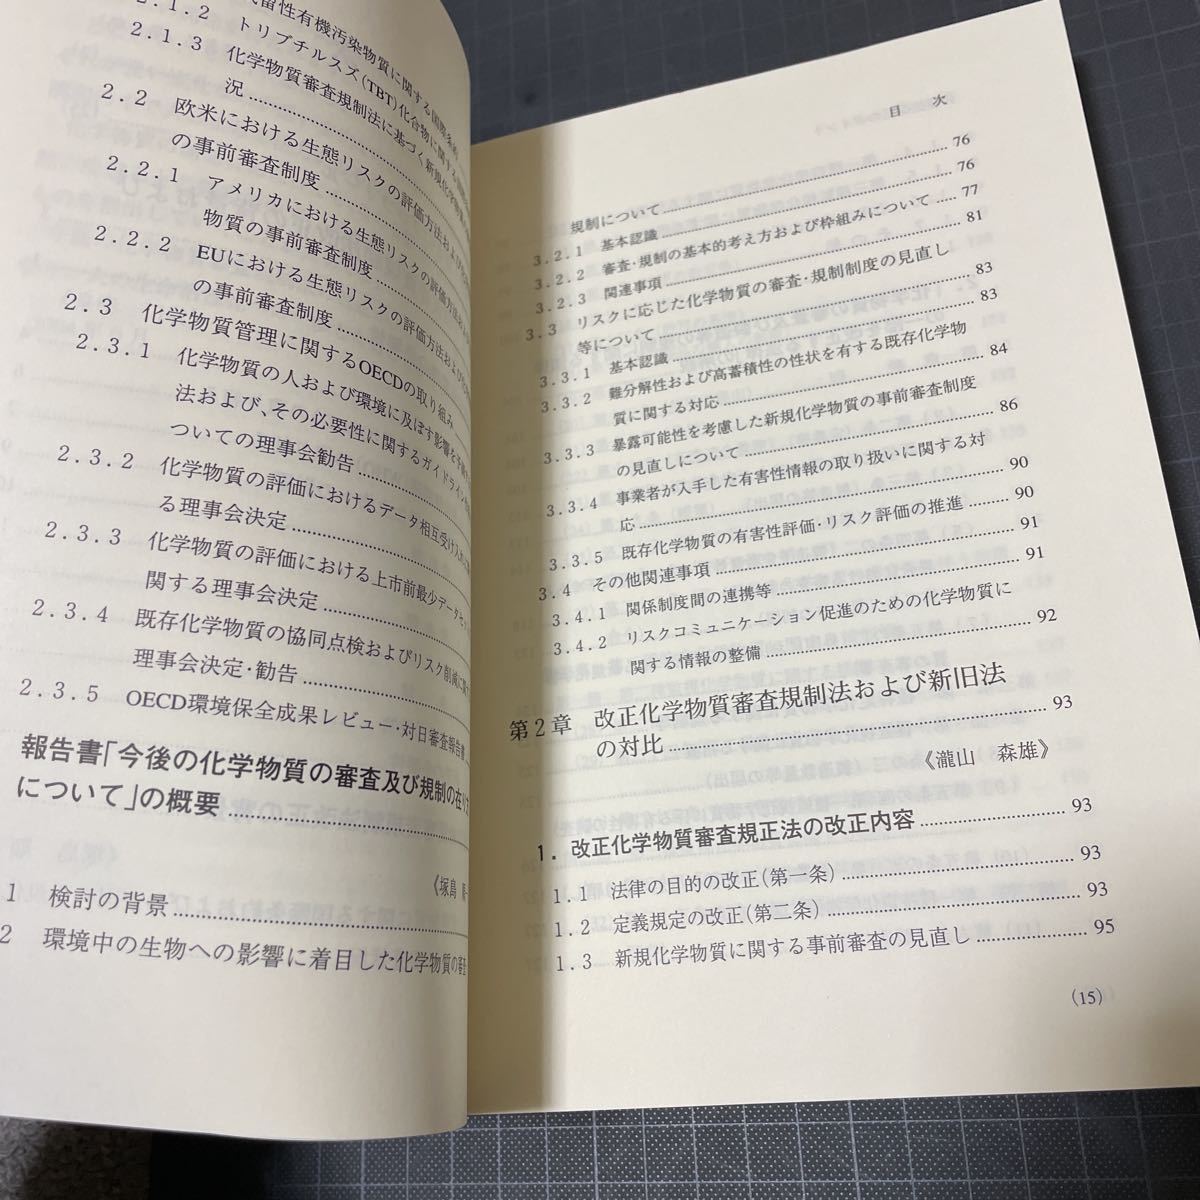 2.1.2 トリブチルスズ(TBT)化合物に関する国際
2.1.3 化学物質審査規制法に基づく新規化学物質の
況
2.2 欧米における生態リスクの評価方法および
の事前審査制度
2.2.1 アメリカにおける生態リスクの評価方法および
物質の事前審査制度
2.2.2 EUにおける生態リスクの評価方法および
の事前審査制度
2.3 化学物質管理に関するOECDの取り組み
2.3.1 化学物質の人および環境に及ぼす影響を
法および、その必要性に関するガイドライン
ついての理事会勧告
2.3.2 化学物質の評価におけるデータ相互受け入れに
る理事会決定
2.3.3 化学物質の評価における上市前最少データセット
関する理事会決定
2.3.4 既存化学物質の協同点検およびリスク削減に関
理事会決定・勧告
2.3.5 OECD環境保全成果レビュー・対日審査報告書
報告書「今後の化学物質の審査及び規制の在り方
について」の概要
《塚島
1 検討の背景
2 環境中の生物への影響に着目した化学物質の審査
目 次
規制について 76
3.2.1 基本認識 76
3.2.2 審査・規制の基本的考え方および枠組みについて 77
3.2.3 関連事項 81
3.3 リスクに応じた化学物質の審査・規制制度の見直し
等について 83
3.3.1 基本認識 83
3.3.2 難分解性および高蓄積性の性状を有する既存化学物
質に関する対応 84
3.3.3 暴露可能性を考慮した新規化学物質の事前審査制度
の見直しについて 86
3.3.4 事業者が入手した有害性情報の取り扱いに関する対
応 90
3.3.5 既存化学物質の有害性評価・リスク評価の推進 90
3.4 その他関連事項 91
3.4.1 関係制度間の連携等 91
3.4.2 リスクコミュニケーション促進のための化学物質に
関する情報の整備 92
第2章 改正化学物質審査規制法および新旧法
の対比 93
《瀧山 森雄》
1. 改正化学物質審査規正法の改正内容 93
1.1 法律の目的の改正(第一条) 93
1.2 定義規定の改正(第二条) 93
1.3 新規化学物質に関する事前審査の見直し 95
(15)